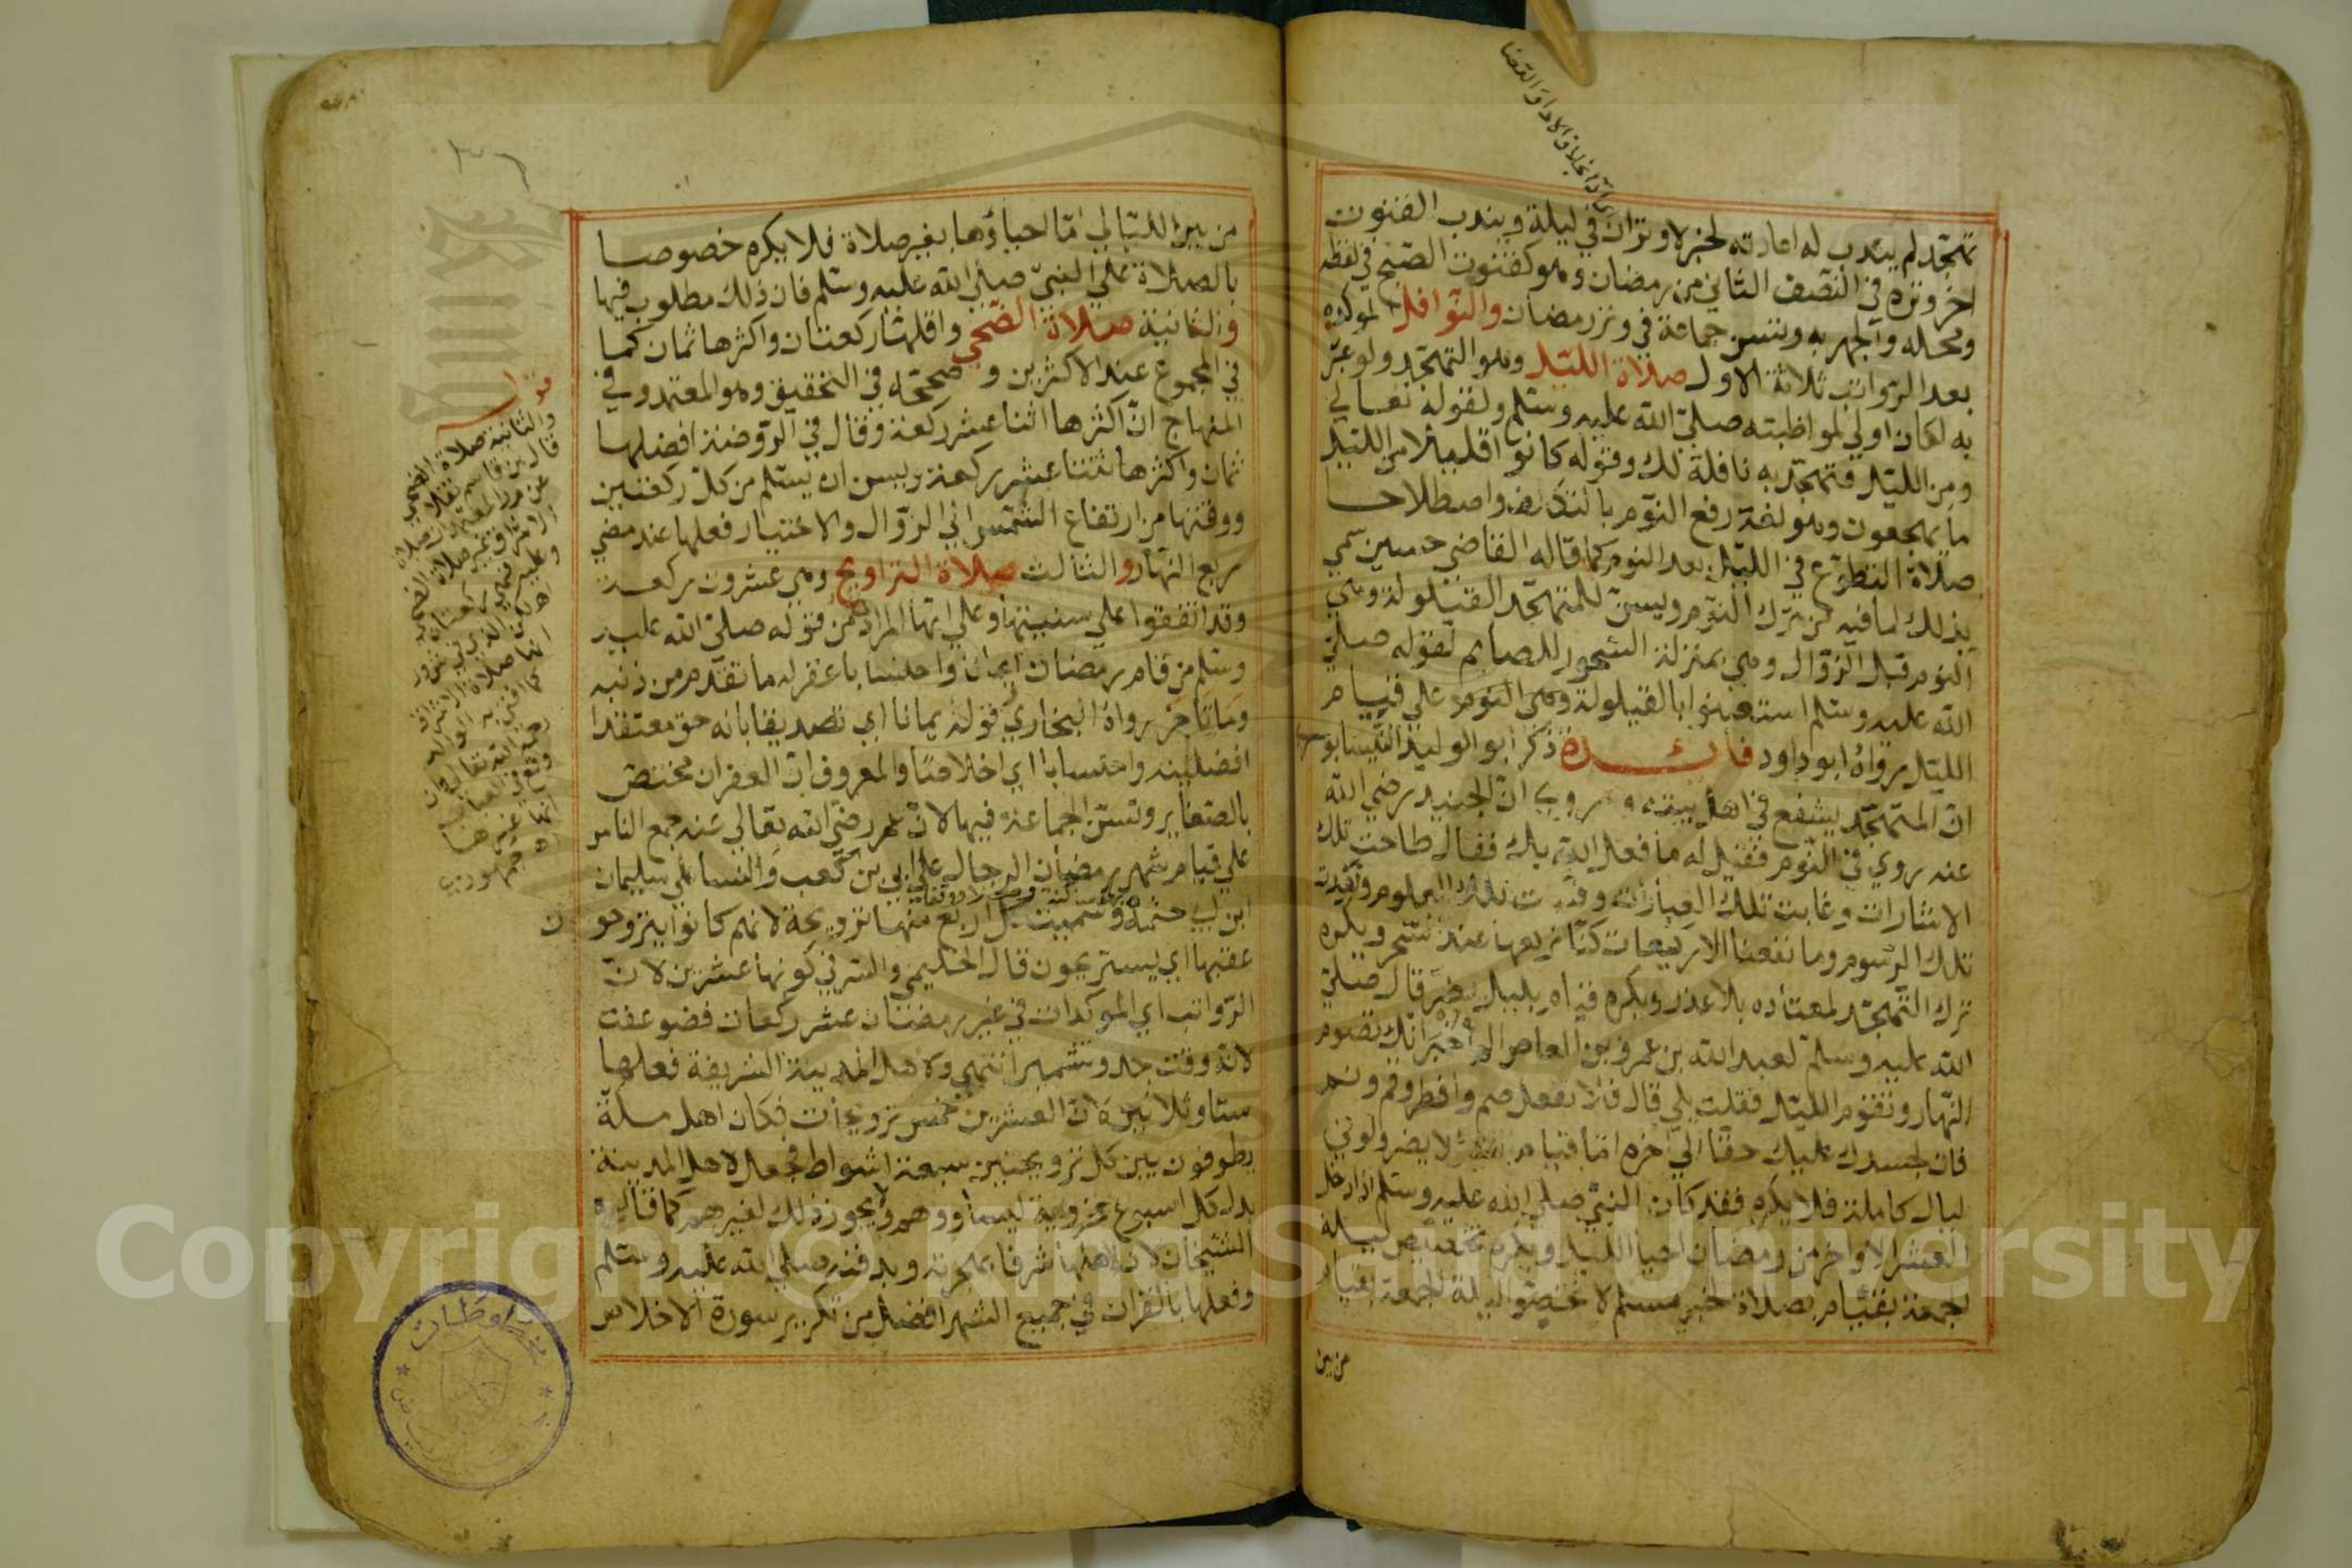 تهجد لم يندب له اعادته لخبر لا وتران في ليلة ويندب القنوت
اخر وتره في النصف الثاني من رمضان وهو كقنوت الصبح في لفظه
ومحله والجهر به وتسن جماعة في وتر رمضان والنوافل الموكده
بعد الرواتب ثلاثة الاول صلاة الليل وهو التهجد ولو عبر
به لكان اولي لمواظبته صلي الله عليه وسلم ولقوله تعالي
ومن الليل فتهجد به نافلة لك وقوله كانوا قليلا من الليل
ما يهجعون وهو لغة رفع النوم بالتكلف واصطلاحا
صلاة التطوع في الليل بعد النوم كما قاله القاضي حسين سمي
بذلك لما فيه من ترك النوم ويسن للمتهجد القيلولة وهي
النوم قبل الزوال وهي بمنزلة السحور للصايم لقوله صلي
الله عليه وسلم استعينوا بالقيلولة وهي النوم علي قيام
الليل رواه ابو داود فائدة ذكر ابو الوليد النيسابوري
ان المتهجد يشفع في اهل بيته وروي ان الجنيد رضي الله
عنه روي في النوم فقيل له ما فعل الله بك فقال طاحت تلك
الاشارات وغابت تلك العبارات وفنيت تلك العلوم ونفدت
تلك الرسوم وما نفعنا الا ركيعات كنا نركعها عند السحر ويكره
ترك التهجد لمعتاده بلا عذر ويكره قيام بليل يضر قال صلي
الله عليه وسلم لعبد الله بن عمرو بن العاص الم اخبر انك تصوم
النهار وتقوم الليل فقلت بلي قال فلا تفعل صم وافطر وقم ونم
فان لجسدك عليك حقا الي اخره اما قيام لا يضر ولو في
ليال كاملة فلا يكره فقد كان النبي صلي الله عليه وسلم اذا دخل
العشر الاواخر من رمضان احيا الليل ويكره تخصيص ليلة
الجمعة بقيام بصلاة لخبر مسلم لا تخصوا ليلة الجمعة بقيام
من بين
من بين الليالي اما احياؤها بغير صلاة فلا يكره خصوصا
بالصلاة علي النبي صلي الله عليه وسلم فان ذلك مطلوب فيها
والثانية صلاة الضحي واقلها ركعتان واكثرها ثمان كما
في المجموع عند الاكثرين وصححه في التحقيق وهو المعتمد وفي
المنهاج ان اكثرها اثنا عشر ركعة وقال في الروضة افضلها
ثمان واكثرها ثنتا عشر ركعة ويسن ان يسلم من كل ركعتين
ووقتها من ارتفاع الشمس الي الزوال والاختيار فعلها عند مضي
ربع النهار والثالث صلاة التراويح وهي عشرون ركعة
وقد اتفقوا علي سنيتها وعلي انها المراد من قوله صلي الله عليه
وسلم من قام رمضان ايمانا واحتسابا غفر له ما تقدم من ذنبه
وما تاخر رواه البخاري قوله يمانا اي تصديقا بانه حق معتقدا
افضليته واحتسابا اي اخلاصا والمعروف ان الغفران مختص
بالصغاير وتسن الجماعة فيها لان عمر رضي الله تعالي عنه جمع الناس
علي قيام شهر رمضان الرجال علي ابي بن كعب والنسا علي سليمان
ابن ابي حثمة وسميت كل اربع منها ترويحة لانهم كانوا يتروحون
عقبها اي يستريحون قال الحليمي والسر في كونها عشرين لان
الرواتب اي الموكدات في غير رمضان عشر ركعات فضوعفت
لانه وقت جد وتشمير انتهي ولاهل المدينة الشريفة فعلها
ستا وثلاثين لان العشرين خمس ترويحات فكان اهل مكة
يطوفون بين كل ترويحتين سبعة اشواط فجعل لاهل المدينة
بدل كل اسبوع ترويحة ليساووهم ولا يجوز ذلك لغيرهم كما قاله
الشيخان لان لاهلها شرفا بهجرته وبدفنه صلي الله عليه وسلم
وفعلها بالقران في جميع الشهر افضل من تكرير سورة الاخلاص
قوله
والثانية صلاة الضحي
Copyright © King Saud University